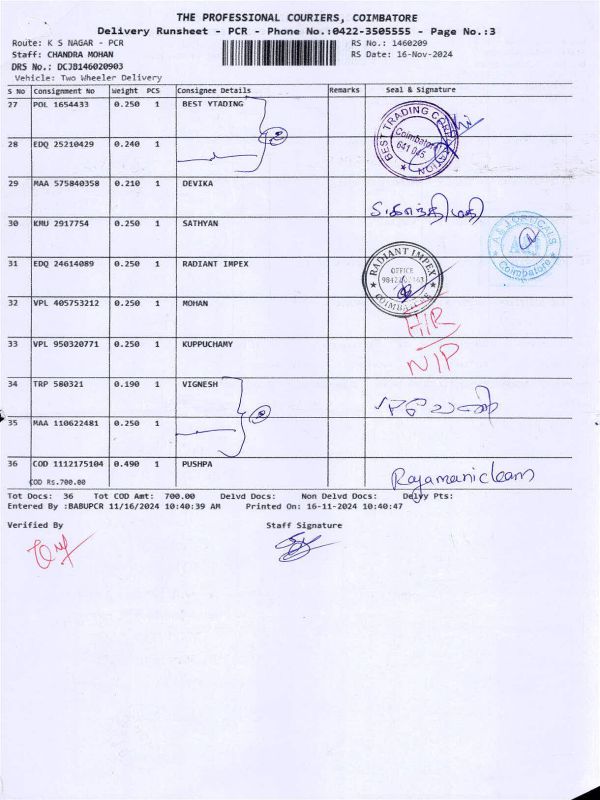 THE PROFESSIONAL COURIERS, COIMBATORE
Delivery Runsheet - PCR - Phone No.:0422-3505555 - Page No.:3
Route: K S NAGAR - PCR RS No.: 1460209
Staff: CHANDRA MOHAN RS Date: 16-Nov-2024
DRS No.: DCJB146020903
Vehicle: Two Wheeler Delivery
S No Consignment No Weight PCS Consignee Details Remarks Seal & Signature
27 POL 1654433 0.250 1 BEST YTADING
BEST TRADING CORPORATION
Coimbatore
641 045
28 EDQ 25210429 0.240 1
29 MAA 575840358 0.210 1 DEVIKA
30 KMU 2917754 0.250 1 SATHYAN
Coimbatore
31 EDQ 24614089 0.250 1 RADIANT IMPEX
RADIANT IMPEX
OFFICE
COIMBATORE
32 VPL 405753212 0.250 1 MOHAN
H/R
33 VPL 950320771 0.250 1 KUPPUCHAMY
N/P
34 TRP 580321 0.190 1 VIGNESH
35 MAA 110622481 0.250 1
36 COD 1112175104 0.490 1 PUSHPA
COD Rs.700.00
Tot Docs: 36 Tot COD Amt: 700.00 Delvd Docs: Non Delvd Docs: Delvy Pts:
Entered By :BABUPCR 11/16/2024 10:40:39 AM Printed On: 16-11-2024 10:40:47
Verified By Staff Signature